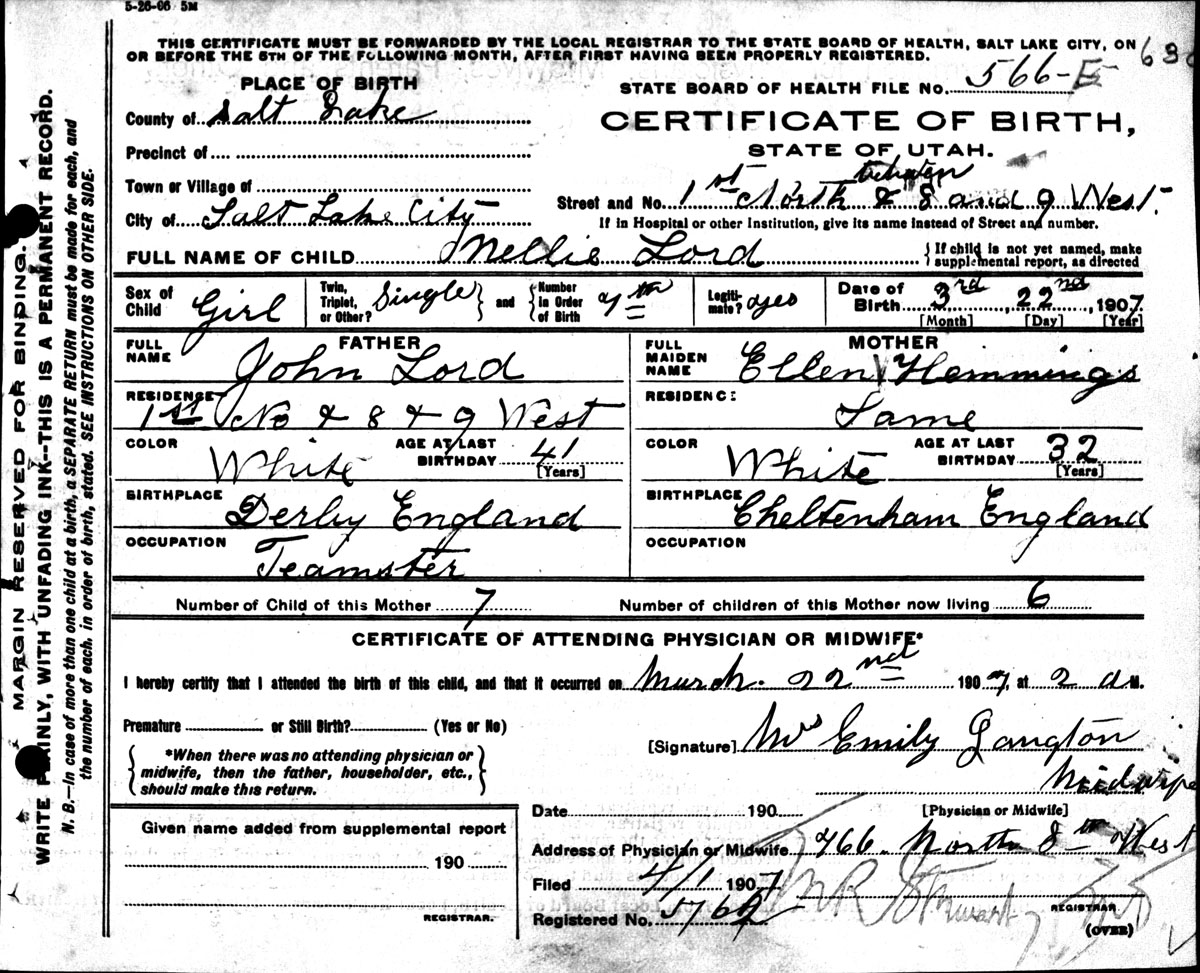 5-26-06 5M
THIS CERTIFICATE MUST BE FORWARDED BY THE LOCAL REGISTRAR TO THE STATE BOARD OF HEALTH, SALT LAKE CITY, ON
OR BEFORE THE 5TH OF THE FOLLOWING MONTH, AFTER FIRST HAVING BEEN PROPERLY REGISTERED.
PLACE OF BIRTH
STATE BOARD OF HEALTH FILE NO. 566-E
County of Salt Lake
CERTIFICATE OF BIRTH,
Precinct of
STATE OF UTAH.
Town or Village of
between
Street and No. 1st North & 8 and 9 West.
City of Salt Lake City
If in Hospital or other Institution, give its name instead of Street and number.
FULL NAME OF CHILD Nellie Lord
{If child is not yet named, make
supplemental report, as directed
Sex of Child Girl
Twin, Triplet, or Other? Single} and {Number in Order of Birth 7th
Legiti-mate? yes
Date of Birth 3rd, 22nd, 1907
[Month] [Day] [Year]
FATHER
FULL NAME John Lord
RESIDENCE
1st No & 8 & 9 West
COLOR White
AGE AT LAST BIRTHDAY 41
[Years]
BIRTHPLACE
Derby England
OCCUPATION
Teamster
MOTHER
FULL MAIDEN NAME Ellen Hemmings
RESIDENCE
Same
COLOR White
AGE AT LAST BIRTHDAY 32
[Years]
BIRTHPLACE
Cheltenham England
OCCUPATION
Number of Child of this Mother 7
Number of children of this Mother now living 6
CERTIFICATE OF ATTENDING PHYSICIAN OR MIDWIFE*
I hereby certify that I attended the birth of this child, and that it occurred on March. 22nd 1907, at 2 a M.
Premature or Still Birth? (Yes or No)
{*When there was no attending physician or
midwife, then the father, householder, etc.,
should make this return.}
[Signature] Mrs Emily Langton
Midwife
[Physician or Midwife]
Date 190
Address of Physician or Midwife 766. North 8th West
Filed 4/1 1907
Registered No. 576
REGISTRAR.
(OVER)
Given name added from supplemental report
190
REGISTRAR.
MARGIN RESERVED FOR BINDING.
WRITE PLAINLY, WITH UNFADING INK--THIS IS A PERMANENT RECORD.
N. B.—In case of more than one child at a birth, a SEPARATE RETURN must be made for each, and
the number of each, in order of birth, stated. SEE INSTRUCTIONS ON OTHER SIDE.